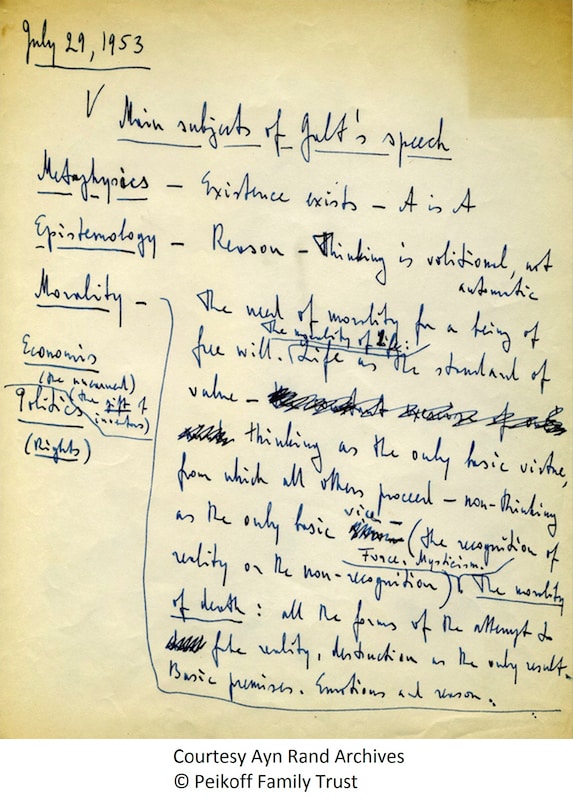 July 29, 1953
√ Main subjects of Galt's speech
Metaphysics – Existence exists – A is A
Epistemology – Reason – Thinking is volitional, not
automatic
Morality –
The need of morality for a being of
The morality of life:
free will. Life as the standard of
value –
thinking as the only basic virtue,
from which all others proceed – non-thinking
vice –
as the only basic (the recognition of
Force. Mysticism.
reality or the non-recognition) The morality
of death: all the forms of the attempt to
fake reality, destruction as the only result.
Basic premises. Emotions and reason.
Economics
(the unearned)
(the gift of
inventors)
Politics
(Rights)
Courtesy Ayn Rand Archives
© Peikoff Family Trust